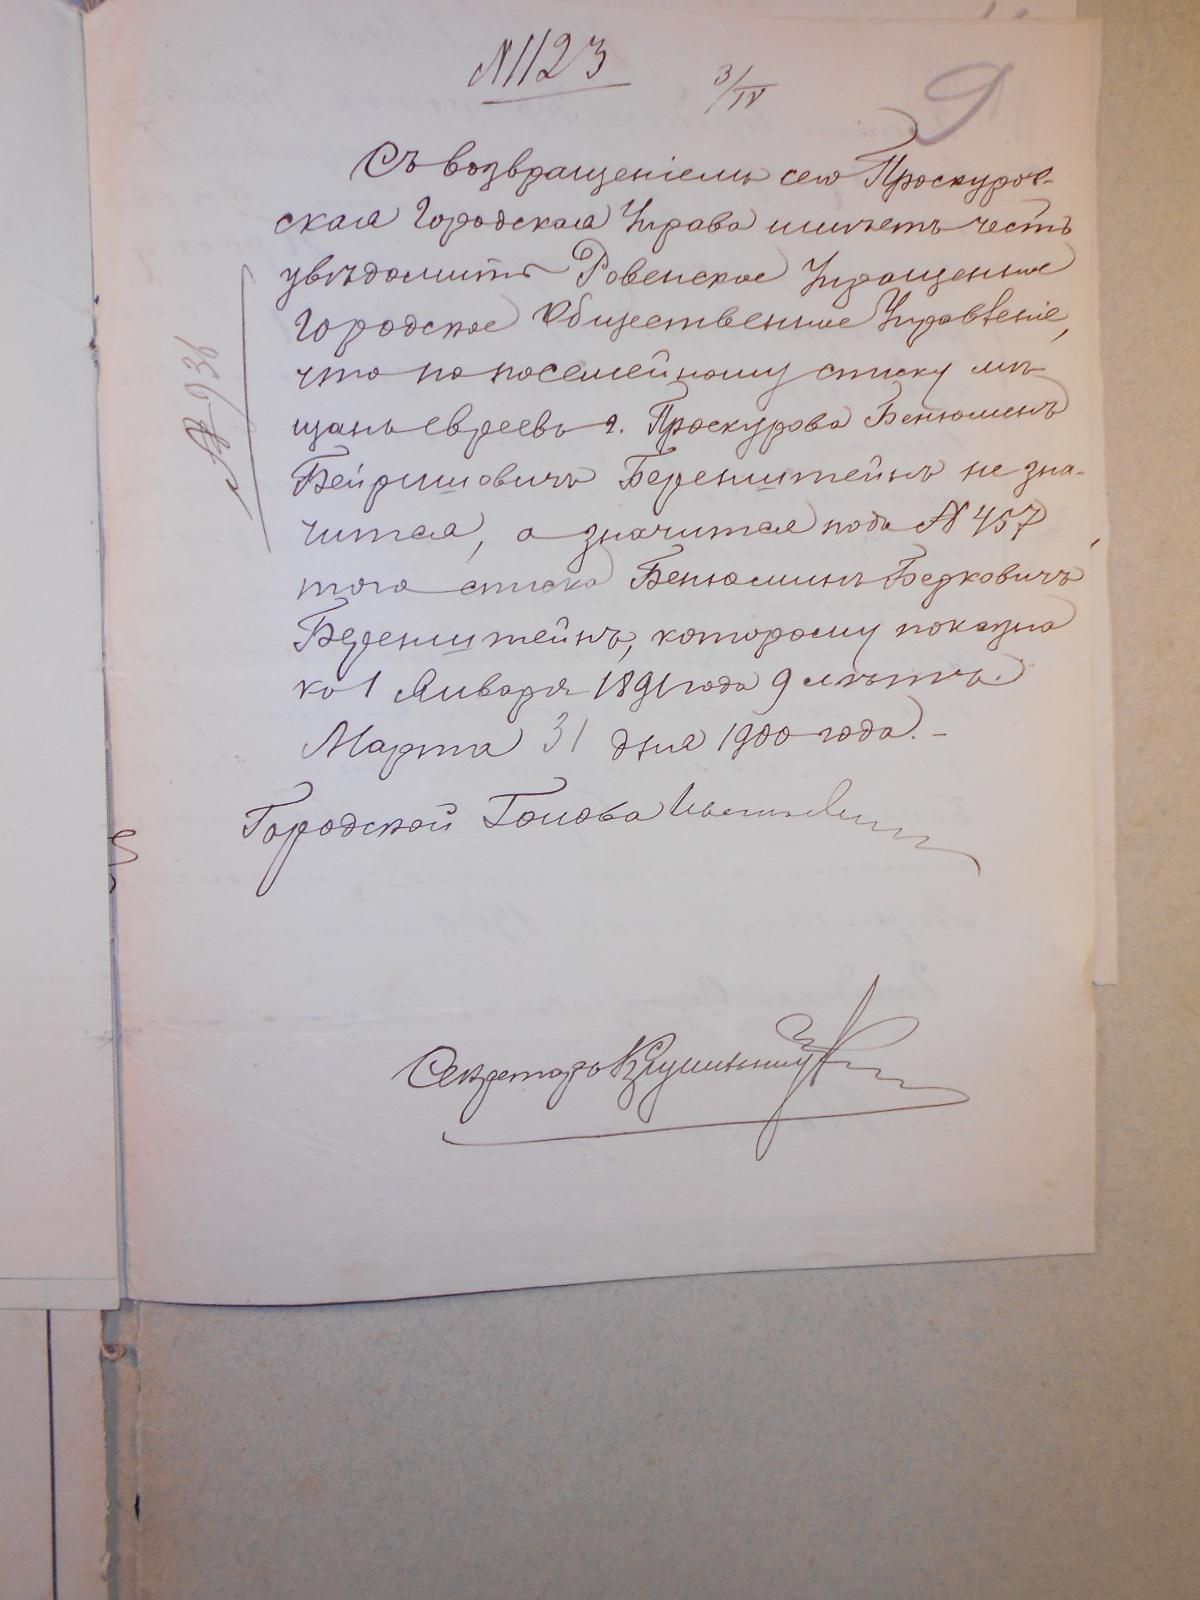 № 1123
3/IV
9
Съ возвращеніемъ сего Проскуров-
ская Городская Управа имѣетъ честь
увѣдомить Ровенское Упрощенное
Городское Общественное Управленіе,
что по посемейному списку мѣ-
щанъ евреевъ г. Проскурова Бенюминъ
Бейришовичъ Беренштейнъ не зна-
чится, а значится подъ № 457
того списка Бенюминъ Берковичъ
Беренштейнъ, которому показано
къ 1 Января 1891 года 9 лѣтъ.
Марта 31 дня 1900 года. -
Городской Голова
Секретарь
№ 936